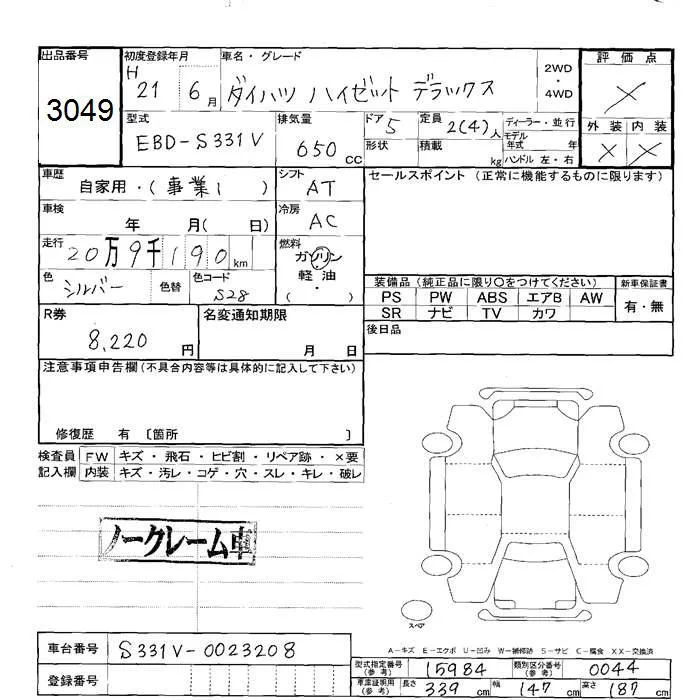 出品番号
3049
初度登録年月
H
21 6月
車名・グレード
ダイハツ ハイゼット デラックス
2WD
・
4WD
評価点
×
外装 内装
× ×
型式
EBD-S331V
排気量
650 CC
ドア 5
形状
定員 2(4)人
積載 kg
ディーラー・並行
モデル
年式 年
ハンドル 左・右
車歴
自家用・(事業1)
シフト
AT
セールスポイント (正常に機能するものに限ります)
車検
年 月( 日)
冷房
AC
走行
20万9千190km
燃料
ガソリン
軽・油
( )
色
シルバー
色替
色コード
S28
装備品 (純正品に限り○をつけてください)
PS PW ABS エアB AW
SR ナビ TV カワ
新車保証書
有・無
R券
8,220 円
名変通知期限
月 日
後日品
注意事項申告欄(不具合内容等は具体的に記入して下さい)
修復歴 有 〔箇所 〕
検査員
記入欄
FW キズ・飛石・ヒビ割・リペア跡・×要
内装 キズ・汚レ・コゲ・穴・スレ・キレ・破レ
ノークレーム車
スペア
A-キズ E-エクボ U-凹み W-補修跡 S-サビ C-腐食 XX-交換済
車台番号 S331V-0023208
登録番号
型式指定番号
(参考)
15984
類別区分番号
(参考)
0044
車庫証明用
(参考)
長さ 339 cm 幅 147 cm 高さ 187 cm